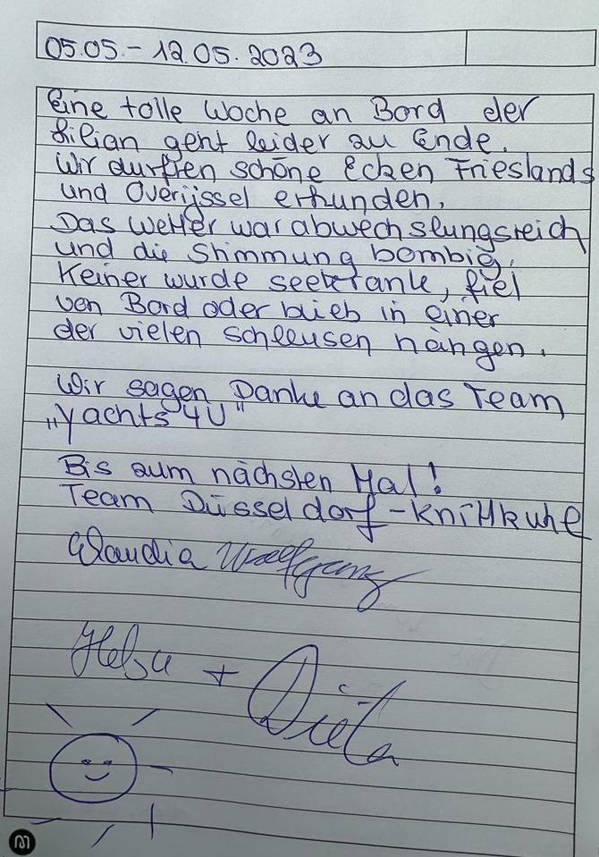 05.05.-12.05.2023
Eine tolle Woche an Bord der
Lilian geht leider zu Ende.
Wir durften schöne Ecken Frieslands
und Overijssel erkunden.
Das Wetter war abwechslungsreich
und die Stimmung bombig.
Keiner wurde seekrank, fiel
von Bord oder blieb in einer
der vielen Schleusen hängen.
Wir sagen Danke an das Team
„Yachts 4U"
Bis zum nächsten Mal!
Team Düsseldorf-Knittkuhl
Claudia Wolfgang
+ Dieter